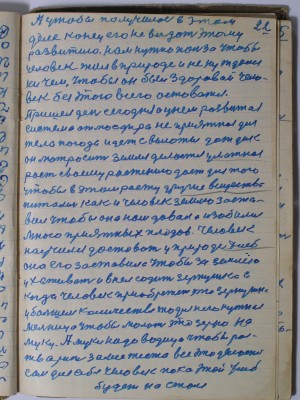 А чтобы получилось в этом
деле, конец его не видат этому
развитию, нам нужно польза чтобы
человек жил в природе и не нуждался
ни чем, чтобы он был здоровай чело-
век без этого всего оставался.
Пришел ден сегодня оценен развитая
система атмосфера не приятная для
тела погода идет с высоты дождик
он мокросит земля делается
рост своему растению дает для того
чтобы в этом расту другие вещества
питали как и человек землю заста-
вил чтобы она нам давал а изобилия
много приятных плодов. Человек
научился доставать у природе хлеб
она его заставила чтобы за землею
ухаживать в нее садит зернушко с
когда человек приобретет это зернушко
у большем количестве тогда его нужна
мелница чтобы молот это зерно на
муку. А муки надо водицу чтобы рас-
творит замес теста все это делает
сам для себя человек пока этой хлеб
будет на столе
22